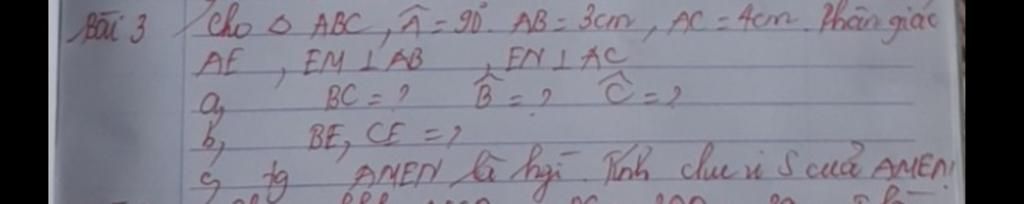 Bài 3 Cho △ ABC, Â = 90°. AB = 3cm, AC = 4cm. Phân giác
AE, EM ⊥ AB, EN ⊥ AC
a, BC = ? B̂ = ? Ĉ = ?
b, BE, CE = ?
c, tg AMEN là hgì. Tính chu vi S của AMEN